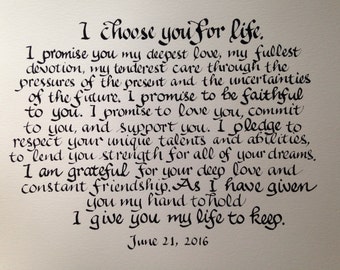 I choose you for life.
I promise you my deepest love, my fullest
devotion, my tenderest care through the
pressures of the present and the uncertainties
of the future. I promise to be faithful
to you. I promise to love you, commit
to you, and support you. I pledge to
respect your unique talents and abilities,
to lend you strength for all of your dreams.
I am grateful for your deep love and
constant friendship. As I have given
you my hand to hold
I give you my life to keep.
June 21, 2016